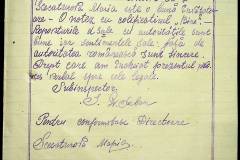 Stocatura Maria este o bună Cetăţe-
are - O notez cu calificativul „Bine".
Raporturile d-sale cu autorităţile sunt
bune iar sentimentele sale faţă de
autoritatea românească sunt sincere.
Drept care am încheiat prezentul
verbal spre cele legale.
Subinspector
Pentru conformitate Directoare
Maria